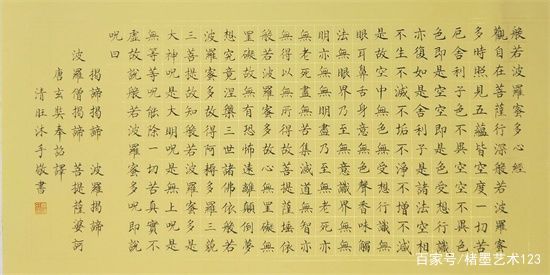 般若波羅蜜多心經
觀自在菩薩行深般若波羅蜜
多時照見五蘊皆空度一切苦
厄舍利子色不異空空不異色
色即是空空即是色受想行識
亦復如是舍利子是諸法空相
不生不滅不垢不淨不增不減
是故空中無色無受想行識無
眼耳鼻舌身意無色聲香味觸
法無眼界乃至無意識界無無
明亦無無明盡乃至無老死亦
無老死盡無苦集滅道無智亦
無得以無所得故菩提薩埵依
般若波羅蜜多故心無罣礙無
罣礙故無有恐怖遠離顛倒夢
想究竟涅槃三世諸佛依般若
波羅蜜多故得阿耨多羅三藐
三菩提故知般若波羅蜜多是
大神呪是大明呪是無上呪是
無等等呪能除一切苦真實不
虛故說般若波羅蜜多呪即說
呪曰
揭諦揭諦 波羅揭諦
波羅僧揭諦 菩提薩婆訶
唐玄奘奉詔譯
清旺沐手敬書
百家号/楮墨艺术123